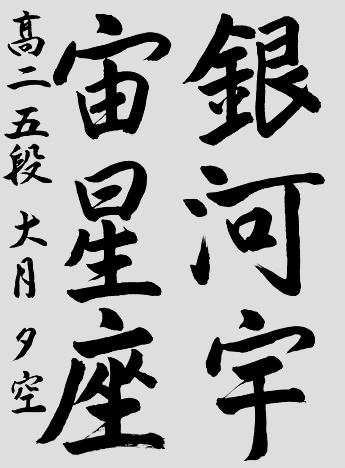 銀河宇
宙星座
高二 五段 大月 夕空